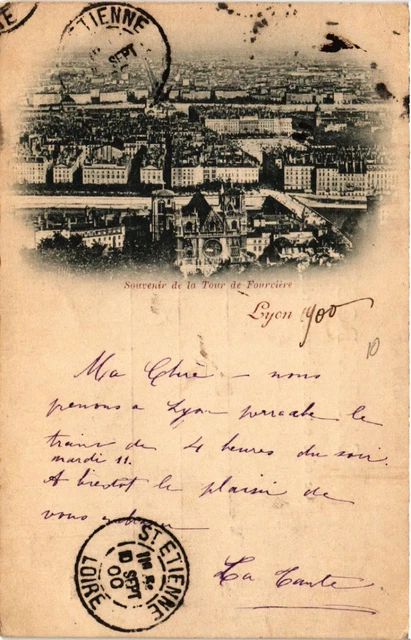 ETIENNE
SEPT
Souvenir de la Tour de Fourvière
Lyon 1900
10
Ma Chère - nous
prenons a Lyon perrache le
train de 4 heures du soir.
mardi 11.
A bientot le plaisir de
vous
La tante
ST ETIENNE
10
SEPT
00
LOIRE